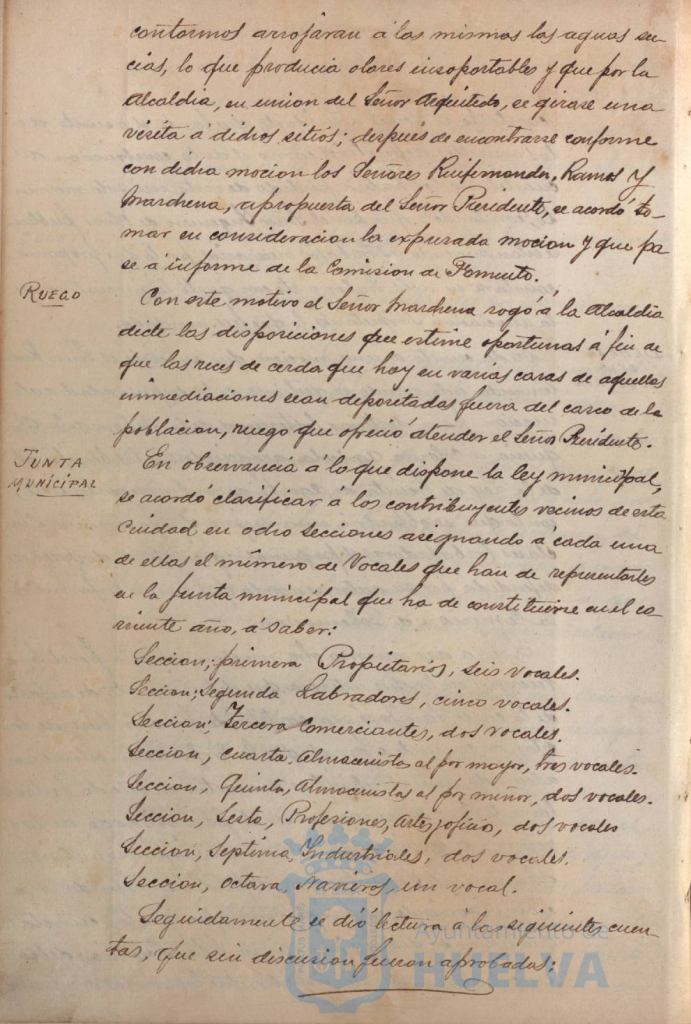 contornos arrojaran á las mismas las aguas su-
cias, lo que producia olores insoportables y que por la
Alcaldia, en union del Señor Arquitecto, se girase una
visita á dichos sitios; después de encontrarse conforme
con dicha mocion los Señores Ruifernandez, Ramos y
Marchena, a propuesta del Señor Presidente, se acordó to-
mar en consideracion la expresada mocion y que pa
se á informe de la Comision de Fomento.
RUEGO
Con este motivo el Señor Marchena rogó á la Alcaldia
dicte las disposiciones que estime oportunas á fin de
que las reces de cerda que hay en varias casas de aquellas
inmediaciones sean depositadas fuera del casco de la
poblacion, ruego que ofreció atender el Señor Presidente.
JUNTA
MUNICIPAL
En observancia á lo que dispone la ley municipal,
se acordó clasificar á los contribuyentes vecinos de esta
Ciudad en ocho secciones asignando á cada una
de ellas el número de Vocales que han de representarles
en la Junta municipal que ha de constituirse en el co
rriente año, á saber:
Seccion; primera Propietarios, seis vocales.
Seccion; Segunda Labradores, cinco vocales.
Seccion; Tercera Comerciantes, dos vocales.
Seccion, Cuarta, Almacenistas al por mayor, tres vocales.
Seccion, Quinta, Almacenistas al por menor, dos vocales.
Seccion, Sesta, Profesiones, Artes y oficios, dos vocales
Seccion, Septima, Industriales, dos vocales.
Seccion, Octava, Navieros, un vocal.
Seguidamente se dió lectura á las siguientes cuen-
tas, que sin discusion fueron aprobadas:
Ayuntamiento de
HUELVA